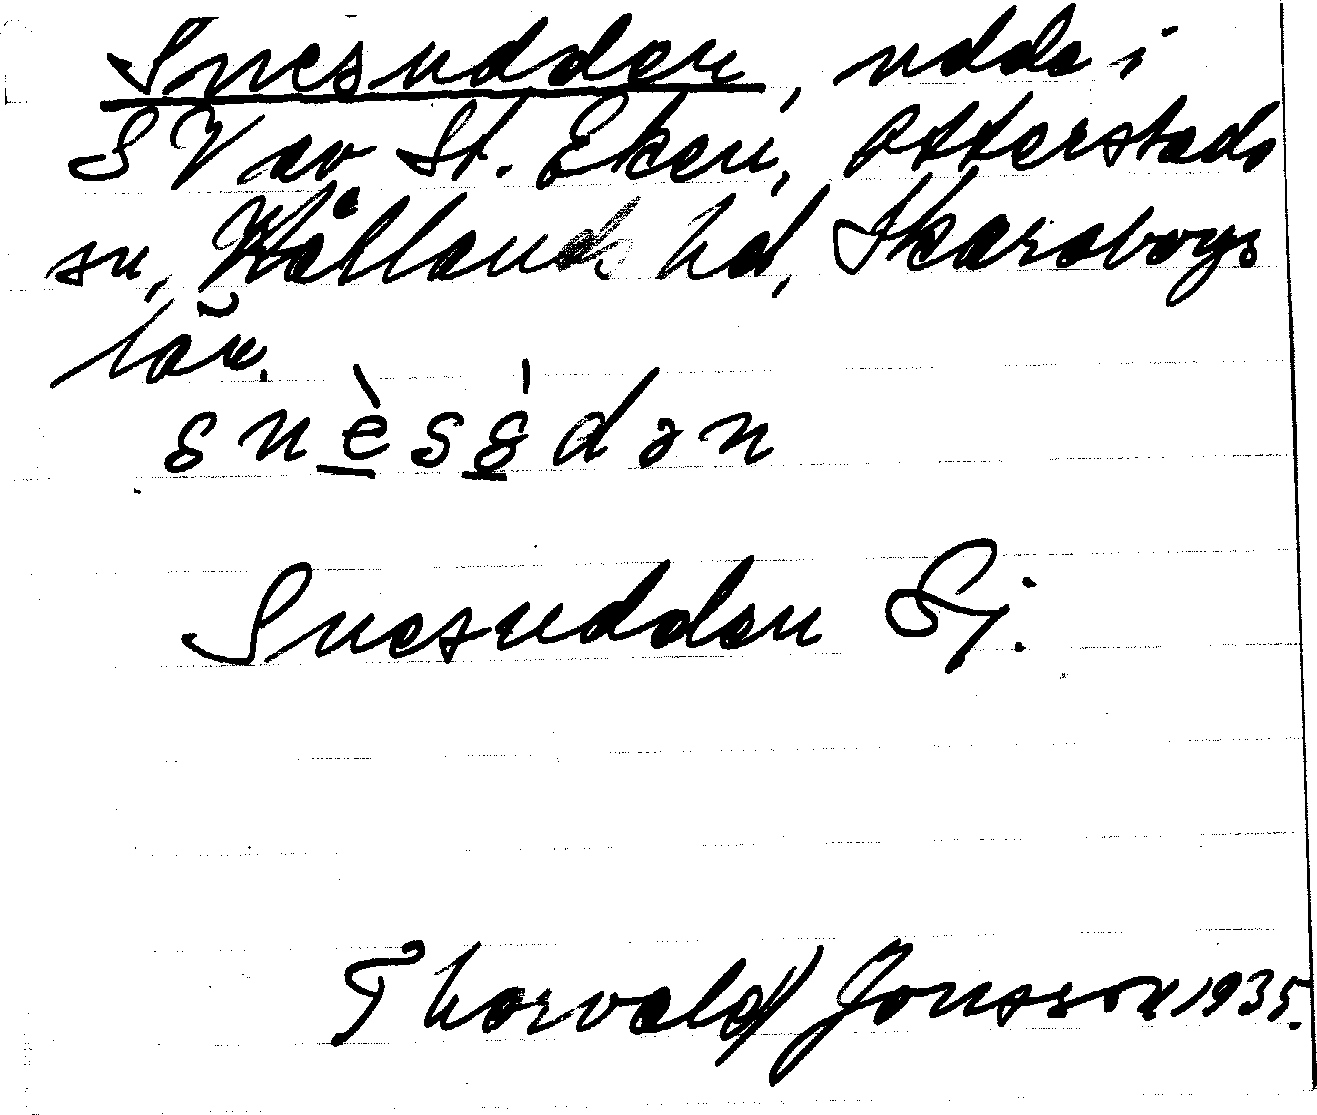 Snesudden, udde i
SV av St. Eken, Otterstads
sn, Kållands hd, Skaraborgs
län.
Snesudden Sj.
Thorvald Jonsson 1935.